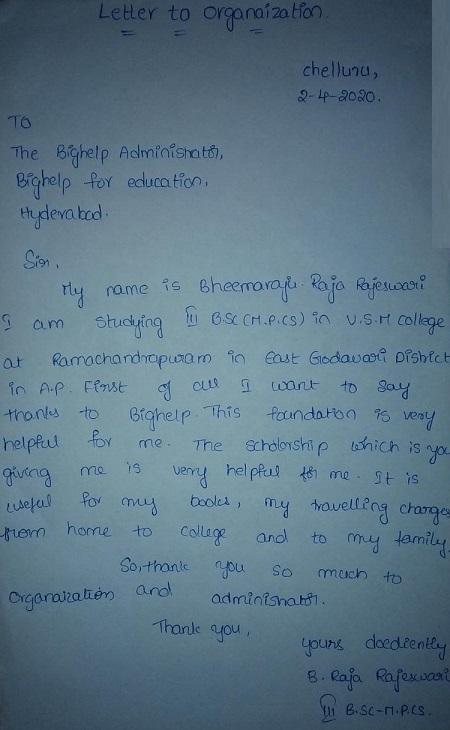 Letter to Organaization
chelluru,
2-4-2020.
TO
The Bighelp Administrator,
Bighelp for education,
Hyderabad.
Sir,
My name is Bheemaraju. Raja Rajeswari
I am studying III B.SC (M.P.CS) in V.S.M college
at Ramachandrapuram in East Godavari District
in A.P. First of all I want to say
thanks to Bighelp. This foundation is very
helpful for me. The scholorship which is you
giving me is very helpful for me. It is
useful for my books, my travelling charges
from home to college and to my family.
So, thank you so much to
Organaization and administrator.
Thank you,
yours doediently
B. Raja Rajeswari
III B.SC-M.P.CS.